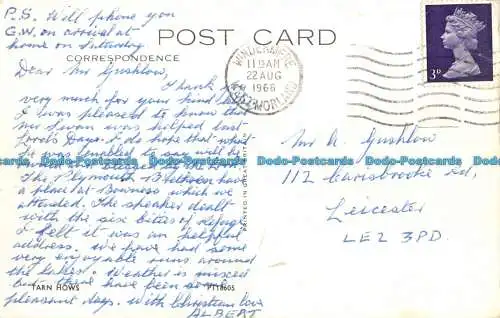 P.S. Will phone you
G.W. on arrival at
home on Saturday.
POST CARD
CORRESPONDENCE
Dear Mr Gushlow,
Thank you
very much for your kind letter
I was pleased to know that
Mr Swan was helped last
Lord's Days. I do hope that what
was enabled to say will be
The Plymouth Brethren have
a place at Bowness which we
attended. The speaker dealt
with the six cities of refuge
& felt it was an helpful
address. We have had some
very enjoyable runs around
the lakes. Weather is mixed
but there have been some
pleasant days. With Christian love
ALBERT
TARN HOWS
PT18605
PRINTED IN GREAT
WINDERMERE
11 30 AM
22 AUG
1968
WESTMORLAND
3D
Mr A. Gushlow
112 Carisbrooke Rd,
Leicester
LE2 3PD.
Bado-Postcards Bado-Postcards Bado-Postcards Bado-Postcards